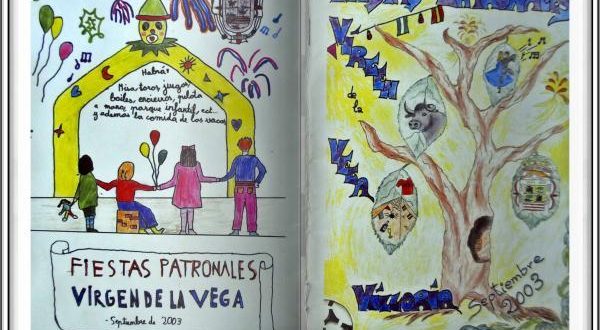 Habrá:
Misa, toros, juegos
bailes, encierros, pelota
a mano, parque infantil, ect...
y además la comida de las vacas
FIESTAS PATRONALES
VIRGEN DE LA VEGA
- Septiembre de 2003
VIRGEN
de la
VEGA
Villoria
Septiembre
2003